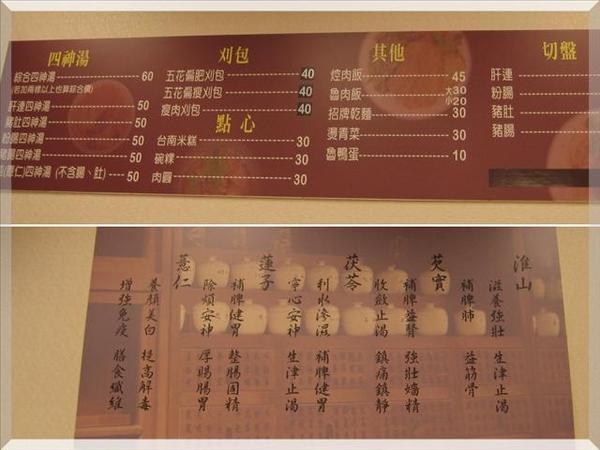 四神湯
綜合四神湯 60
(若加兩樣以上也算綜合價)
肝連四神湯 50
豬肚四神湯 50
粉腸四神湯 50
豬腸四神湯 50
(薏仁)四神湯 (不含腸、肚) 50
刈包
五花偏肥刈包 40
五花偏瘦刈包 40
瘦肉刈包 40
點心
台南米糕 30
碗粿 30
肉圓 30
其他
焢肉飯 45
魯肉飯 大30 小20
招牌乾麵 30
燙青菜 30
魯鴨蛋 10
切盤
肝連
粉腸
豬肚
豬腸
淮山
滋養強壯 生津止渴
補脾肺 益筋骨
芡實
補脾益腎 強壯媎精
收斂止瀉 鎮痛鎮靜
茯苓
利水滲濕 補脾健胃
寧心安神 生津止渴
蓮子
補脾健胃 整腸固精
除煩安神 厚腸胃
薏仁
養顏美白 提高解毒
增強免疫 膳食纖維